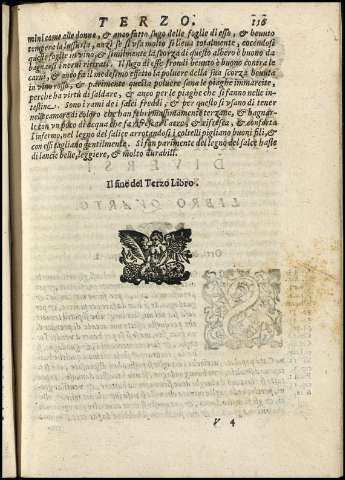 TERZO. 156
mini come alle donne, & anco fatto sugo delle foglie di esso, & beuuto
tempera la lussuria, anzi se si vsa molto si lieua totalmente, cocendosi
queste foglie in vino, & similmente la scorza di questo albero è buono da
bagnarsi i nerui ritirati. Il sugo di esse frondi beuuto è buono contra le
carui, & anco fa il medesimo effetto la poluere della sua scorza beuuta
in vino rosso, & parimente questa poluere sana le piaghe immarcite,
perche ha virtù di saldare, & anco per le piaghe che si fanno nelle in-
testine. Sono i rami de i salci freddi, & per questo si vsano di tener
nelle camere di coloro che han febri massimamente terzane, & bagnar-
li con vn poco di acqua che fa l'aere fresco & & conforta
l'infermo, nel legno del salice arrotandosi i coltelli pigliano buoni fili, &
con essi tagliano gentilmente. Si fan parimente del legno del salce haste
di lancie belle, leggiere, & molto durabili.
Il fine del Terzo Libro.
DIVERSI
LIBRO QVARTO.
V 4